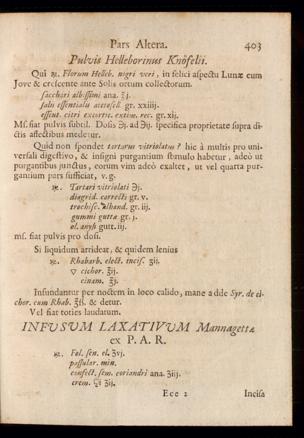 Pars Altera. 403
Pulvis Helleborinus Knöfelii.
Qui ℞. Florum Helleb. nigri veri, in felici aspectu Lunæ cum
Jove & crescente ante Solis ortum collectorum.
sacchari albissimi ana. ʒj.
salis essentialis acetosell. gr. xxiiij.
essent. citri excortic. extim. rec. gr. xij.
Mſ. fiat pulvis subtil. Dosis ℈j. ad ℈ij. specifica proprietate supra di-
ctis affectibus medetur.
Quid non spondet tartarus vitriolatus? hic à multis pro uni-
versali digestivo, & insigni purgantium stimulo habetur, adeò ut
purgantibus junctus, eorum vim adeò exaltet, ut vel quarta pur-
gantium pars sufficiat, v. g.
℞. Tartari vitriolati ℈j.
diagrid. correcti gr. v.
trochisc. alhand. gr. iij.
gummi guttæ gr. j.
ol. anysi gutt. iij.
mſ. fiat pulvis pro dosi.
Si liquidum arrideat, & quidem lenius
℞. Rhabarb. elect. incis. ʒij.
▽ cichor. ℥ij.
cinam. ℥j.
Infundantur per noctem in loco calido, mane adde Syr. de ci-
chor. cum Rhab. & detur.
Vel fiat toties laudatum.
INFUSUM LAXATIVUM Mannagettæ
ex P. A. R.
℞. Fol. sen. el. ʒvj.
passular. min.
confect. sem. coriandri ana. ʒiij.
crem. ʒij.
Eee 2 Incisa